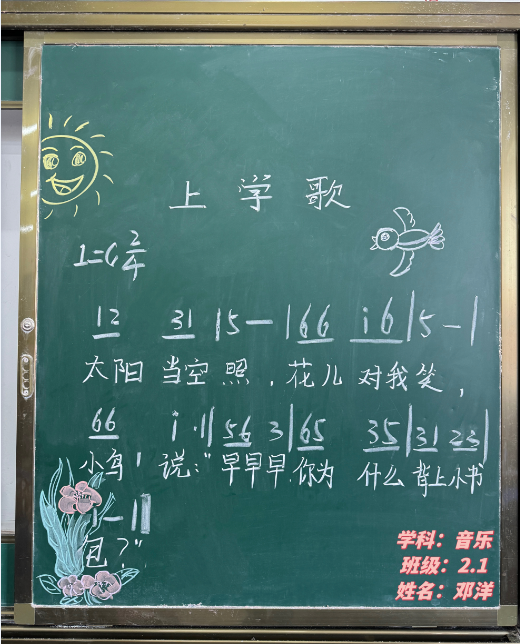 上学歌
1=C 2/4
12 31 | 5 — | 66 i6 | 5 — |
太阳 当空 照，花儿 对我 笑，
66 i· | 56 3 | 65 35 | 31 23 |
小鸟 说："早早早，你为 什么 背上小书
1 — ‖
包？"
学科：音乐
班级：2.1
姓名：邓洋